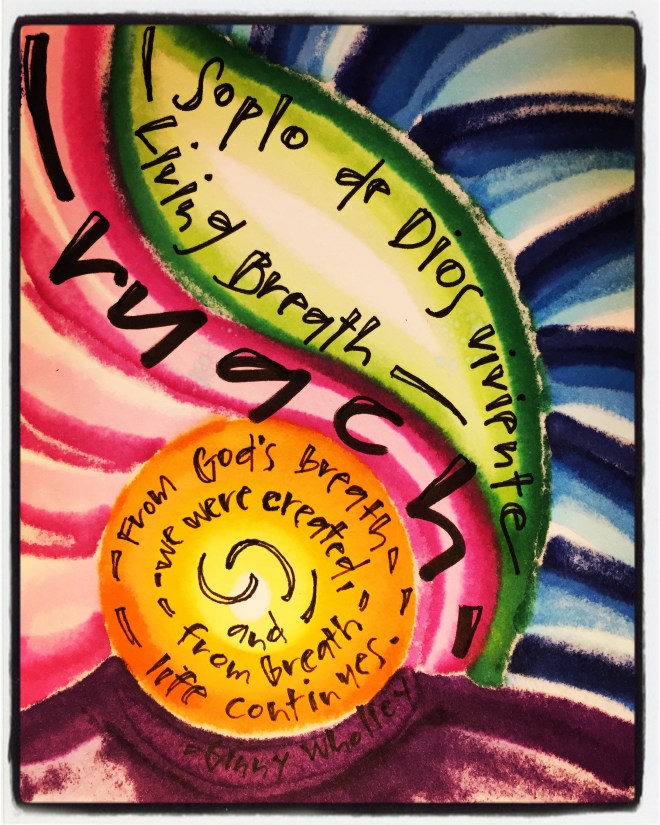 Soplo de Dios viviente
Living Breath
ruach
From God's breath
we were created,
and
from breath
life continues.
- Ginny Wholley